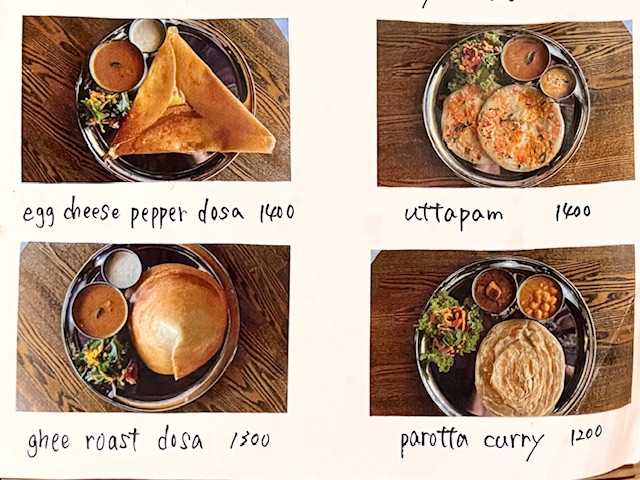 egg cheese pepper dosa 1400
uttapam 1400
ghee roast dosa 1300
parotta curry 1200